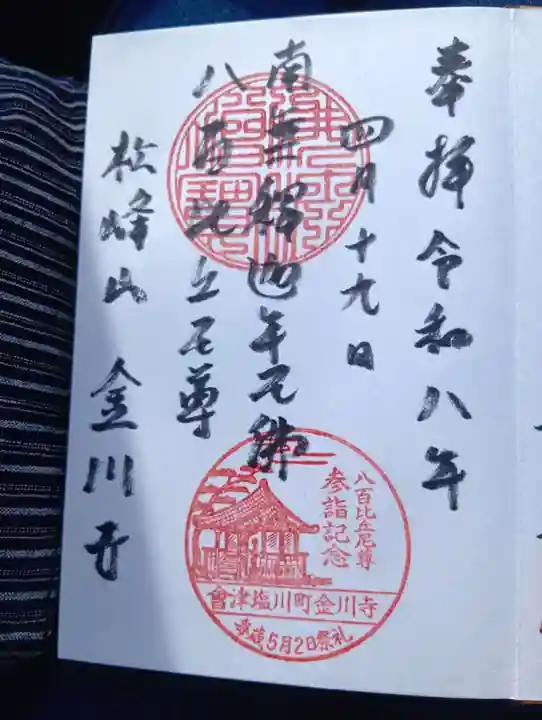 奉拝 令和八年
四月十九日
南無釈迦牟尼佛
八百比丘尼尊
松峰山 金川寺
八百比丘尼尊
参詣記念
會津塩川町金川寺
5月2日祭礼